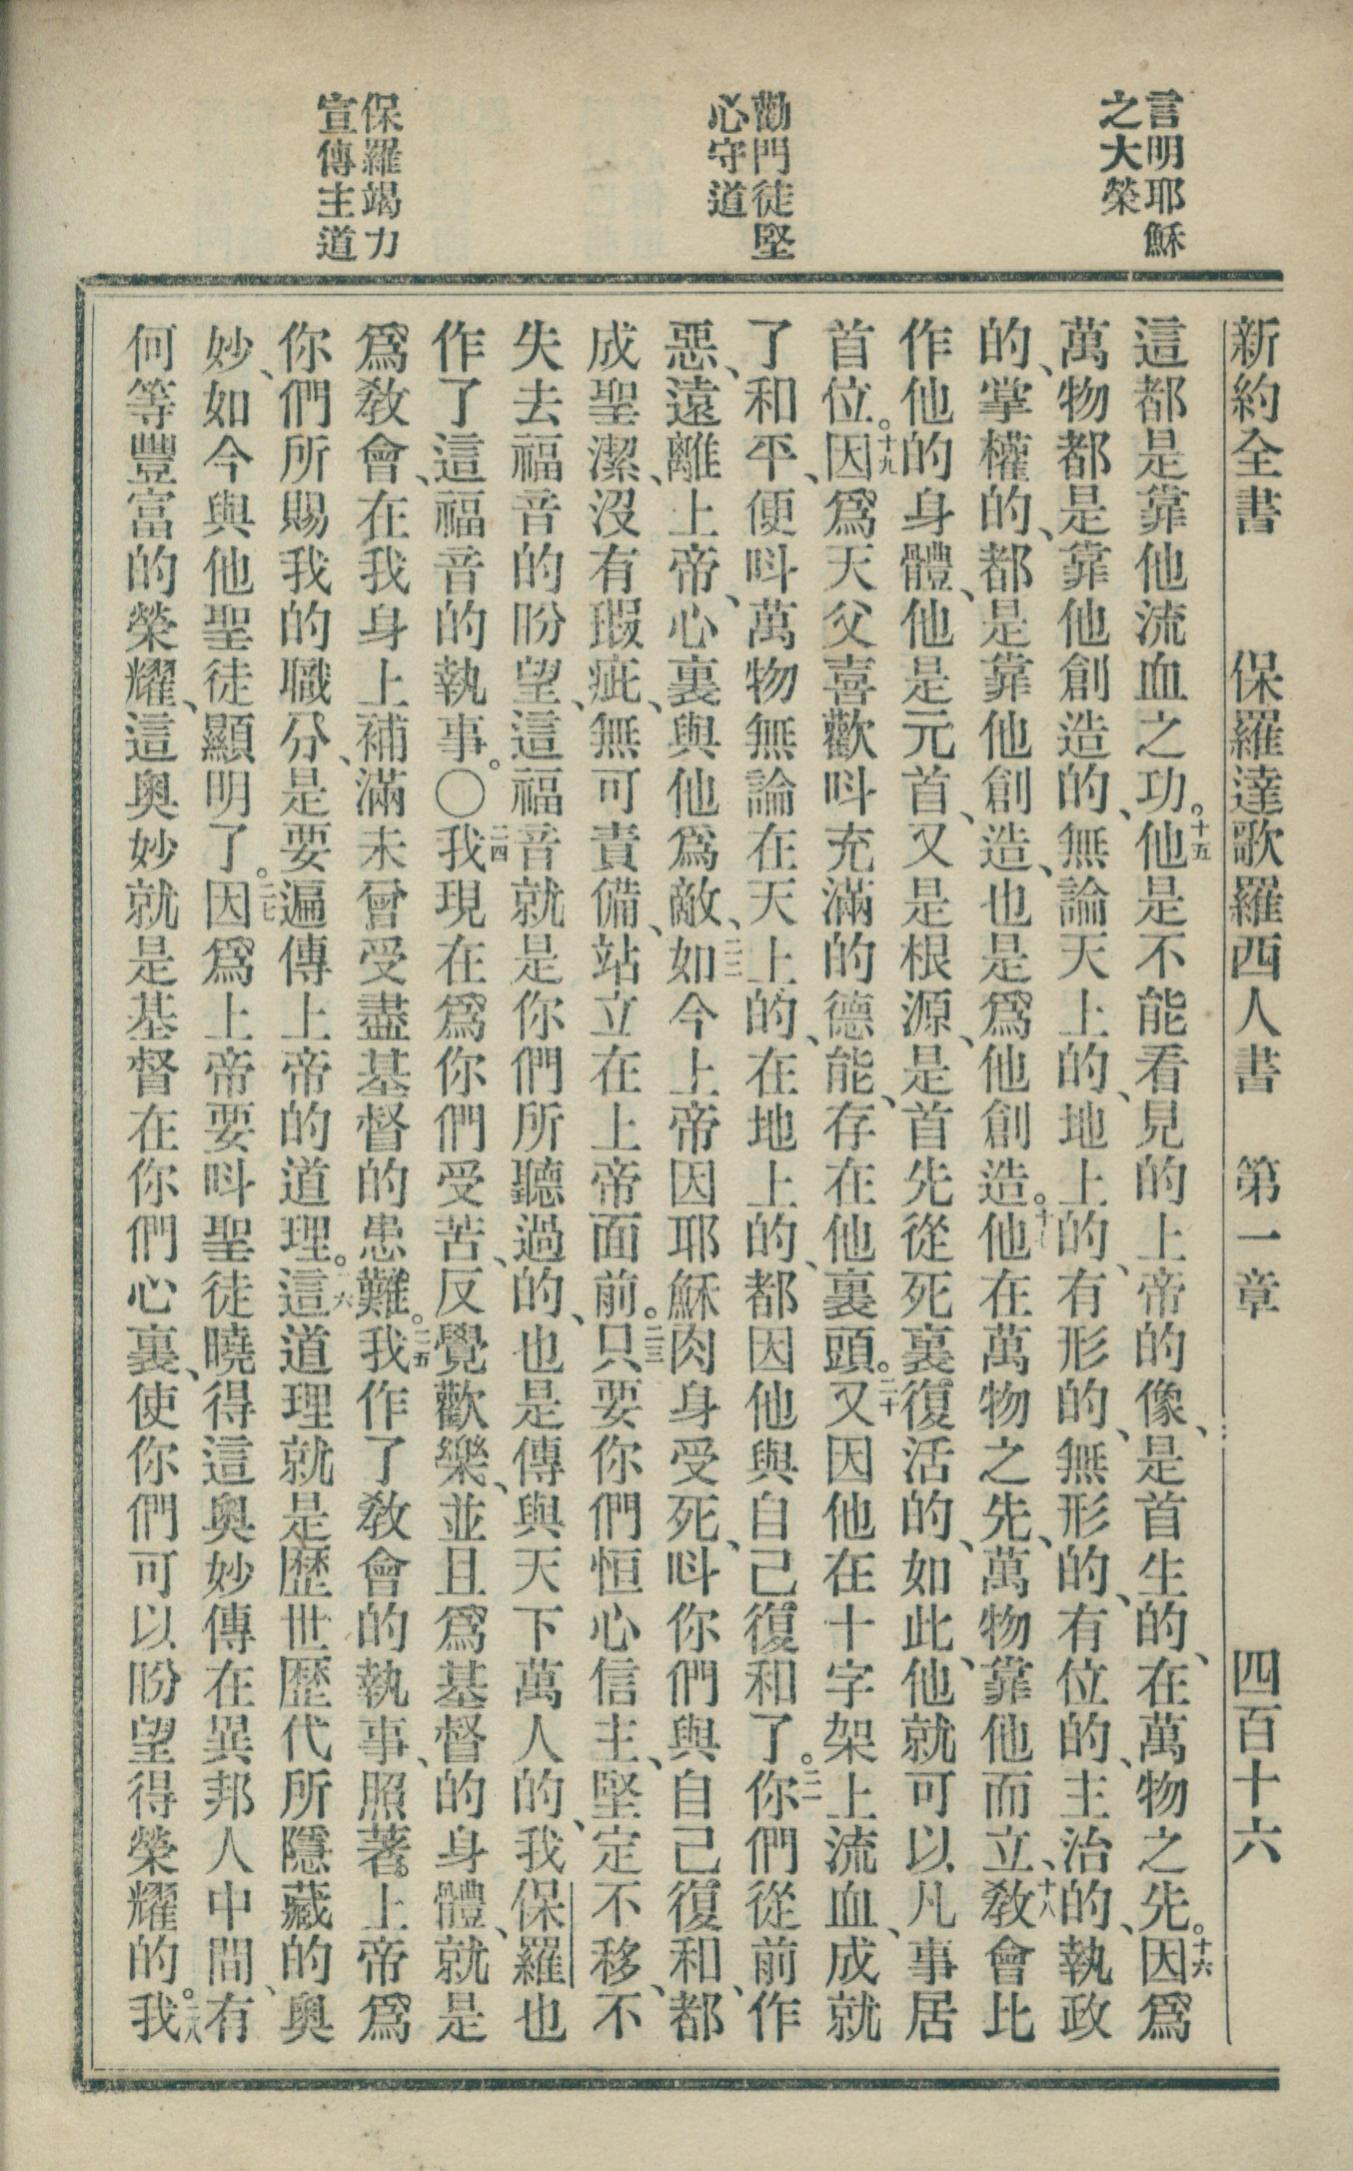 言明耶穌
之大榮
勸門徒堅
心守道
保羅竭力
宣傳主道
新約全書 保羅達歌羅西人書 第一章 四百十六
這都是靠他流血之功。十五他是不能看見的上帝的像、是首生的、在萬物之先。十六因爲
萬物都是靠他創造的、無論天上的、地上的、有形的、無形的、有位的、主治的、執政
的、掌權的、都是靠他創造、也是爲他創造。十七他在萬物之先、萬物靠他而立、十八敎會比
作他的身體、他是元首、又是根源、是首先從死裏復活的、如此、他就可以凡事居
首位。十九因爲天父喜歡呌充滿的德能、存在他裏頭。二十又因他在十字架上流血、成就
了和平、便呌萬物無論在天上的、在地上的、都因他與自己復和了。二一你們從前作
惡、遠離上帝、心裏與他爲敵、二二如今上帝因耶穌肉身受死、呌你們與自己復和、都
成聖潔、沒有瑕疵、無可責備、站立在上帝面前。二三只要你們恒心信主、堅定不移、不
失去福音的盼望、這福音就是你們所聽過的、也是傳與天下萬人的、我保羅也
作了這福音的執事。〇二四我現在爲你們受苦、反覺歡樂、並且爲基督的身體、就是
爲敎會、在我身上補滿未曾受盡基督的患難。二五我作了敎會的執事、照著上帝爲
你們所賜我的職分、是要遍傳上帝的道理。二六這道理就是歷世歷代所隱藏的奧
妙、如今與他聖徒顯明了。二七因爲上帝要呌聖徒曉得這奧妙傳在異邦人中間、有
何等豐富的榮耀、這奧妙就是基督在你們心裏、使你們可以盼望得榮耀的。二八我